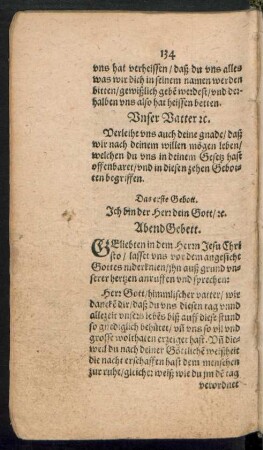 134
vns hat verheissen / daß du vns alles
was wir dich in seinem namen werden
bitten / gewißlich gebē werdest / vnd der-
halben vns also hat heissen betten.
Vnser Vatter ꝛc.
Verleiht vns auch deine gnade / daß
wir nach deinem willen mögen leben /
welchen du vns in deinem Gesetz hast
offenbaret / vnd in diesen zehen Gebot-
ten begriffen.
Das erste Gebott.
Ich bin der Herr dein Gott / ꝛc.
AbendGebett.
GEliebten in dem Herrn Jesu Chri
sto / lasset vns vor dem angesicht
Gottes niderknien / jhn auß grund vn-
serer hertzen anruffen vnd sprechen:
Herr Gott / himmlischer vatter / wir
danckē dir / daß du vns diesen tag vnnd
allezeit vnsers lebēs biß auff diese stund
so gnediglich behütet / vñ vns so vil vnd
grosse wolthaten erzeiget hast. Vñ die-
weil du nach deiner Göttlichē weißheit
die nacht erschaffen hast dem menschen
zur ruht / gleicher weiß wie du jm dē tag
verordnet